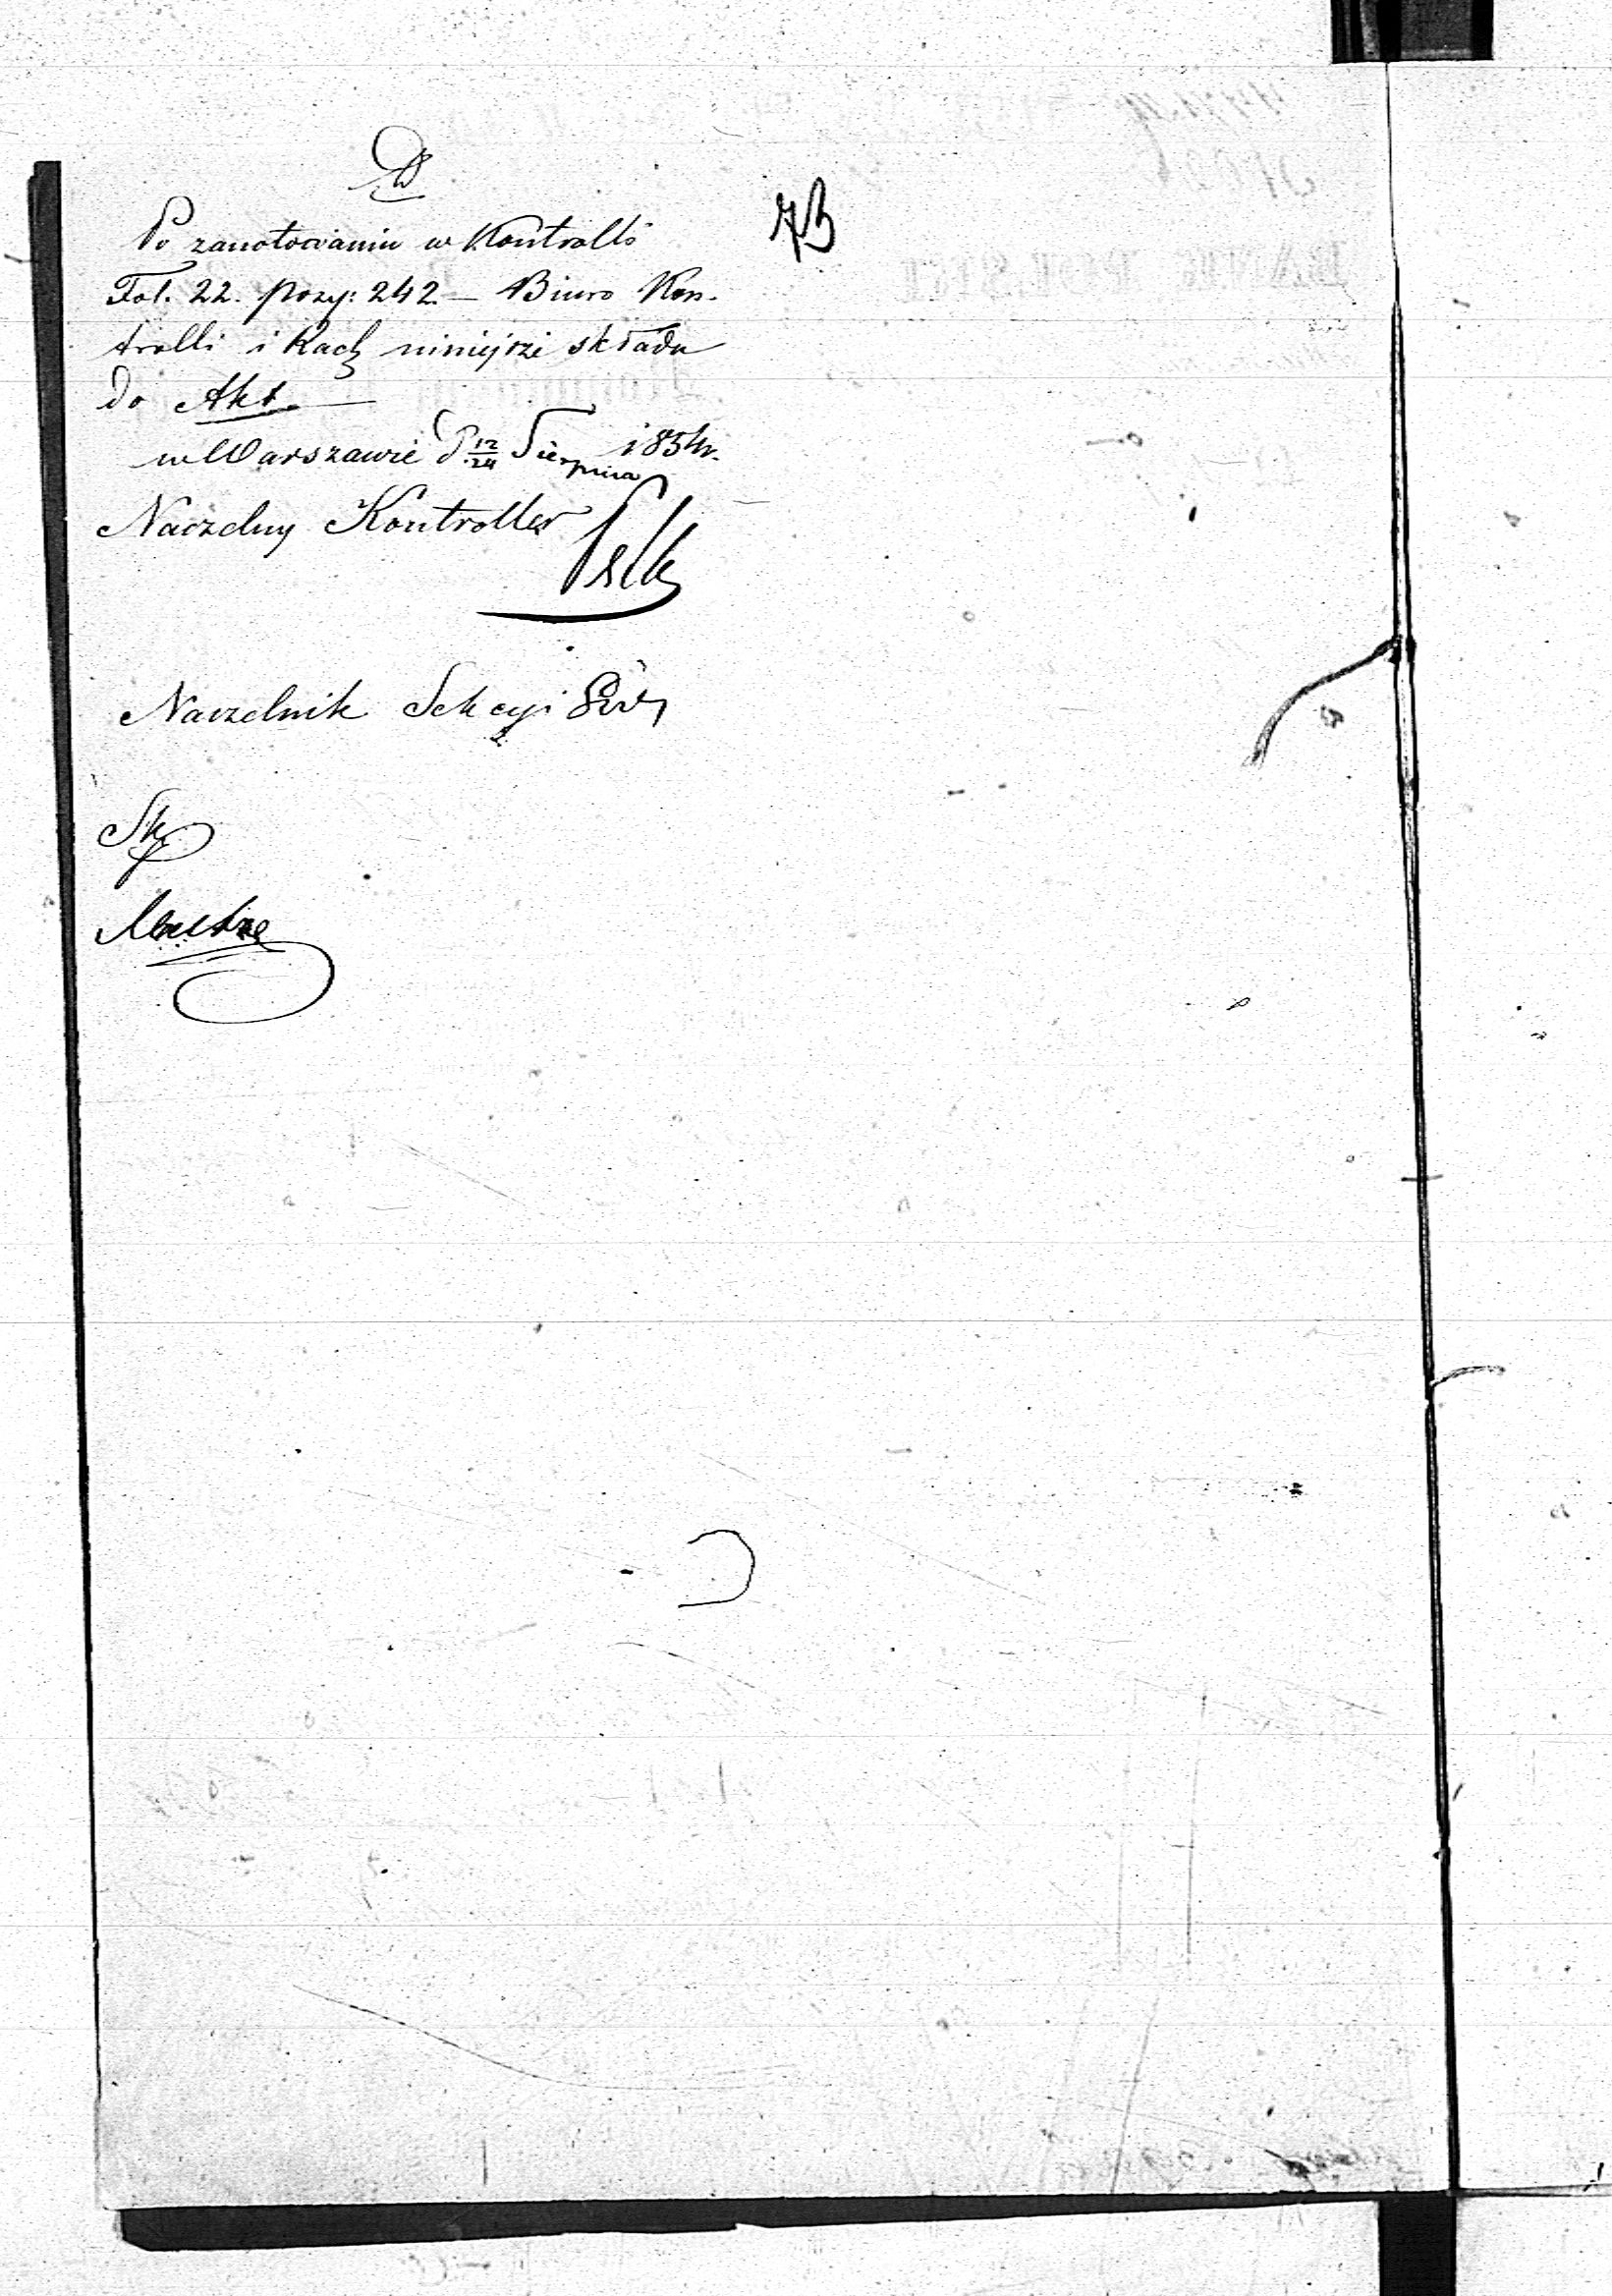 73
Po zanotowaniu w Kontrolli
Fol. 22. pozy: 242 — Biuro Kon-
trolli i Rach niniejsze składa
do Akt. —
w Warszawie d. 12/24 Sierpnia 1854 r.
Naczelny Kontroller
Naczelnik Sekcyi